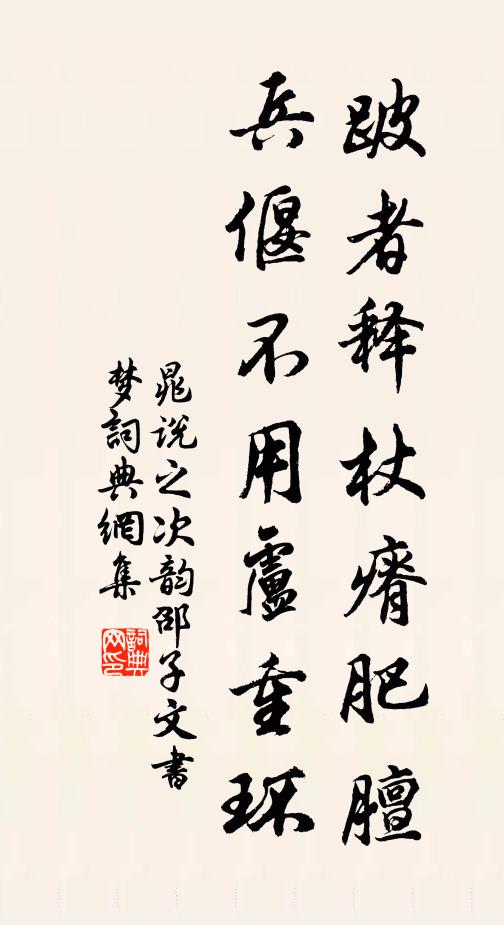 跛者释杖瘠肥膻
兵偃不用卢重环
晁说之次韵邵子文书
梦词典網集
詞典網印